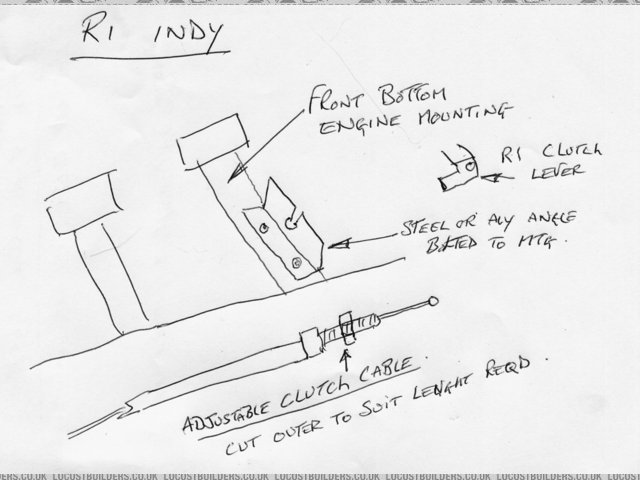 R1 INDY
FRONT BOTTOM
ENGINE MOUNTING
R1 CLUTCH
LEVER
STEEL OR ALY ANGLE
BOLTED TO MTG.
ADJUSTABLE CLUTCH CABLE.
CUT OUTER TO SUIT LENGHT REQD.
LOCUSTBUILDERS.CO.UK LOCUSTBUILDERS.CO.UK LOCUSTBUILDERS.CO.UK LOCUSTBUILDERS.CO.UK LOCUSTBUILDERS.CO.UK